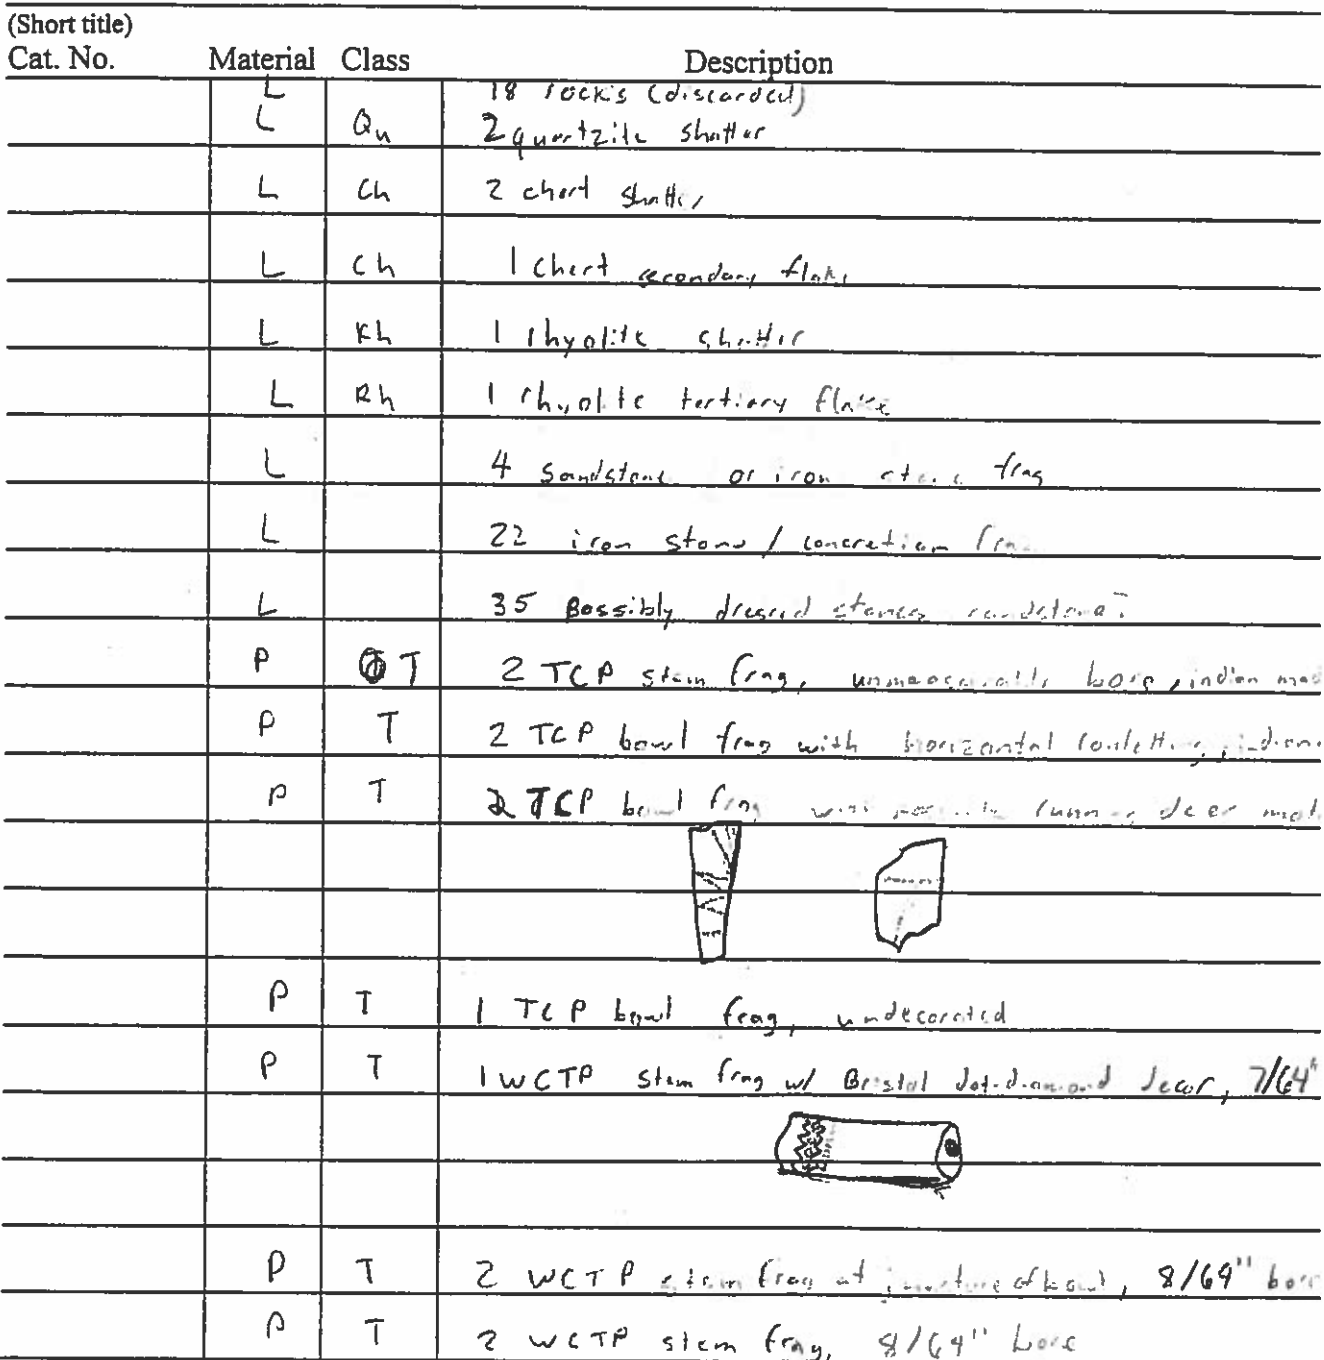 (Short title)
Cat. No. Material Class Description
L 18 rocks (discarded)
L Qu 2 quartzite shatter
L Ch 2 chert shatter
L Ch 1 Chert secondary flake
L Rh 1 rhyolite shatter
L Rh 1 rhyolite tertiary flake
L 4 sandstone or iron stone frag
L 22 iron stone / concretion frag
L 35 Possibly dressed stones sandstone?
P T 2 TCP stem frag, unmeasurable bore, indian mad
P T 2 TCP bowl frag with horizontal rouletting, indian
P T 2 TCP bowl frag with possible running deer moti
P T 1 TCP bowl frag, undecorated
P T 1 WCTP stem frag w/ Bristol dot-diamond decor, 7/64"
P T 2 WCTP stem frag at juncture of bowl, 8/64" bore
P T 2 WCTP stem frag, 8/64" bore